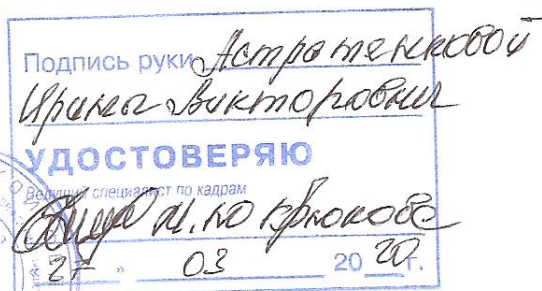 Подпись руки Астратенковой
Ирины Викторовны
УДОСТОВЕРЯЮ
Ведущий специалист по кадрам
27 " 03 2020 г.